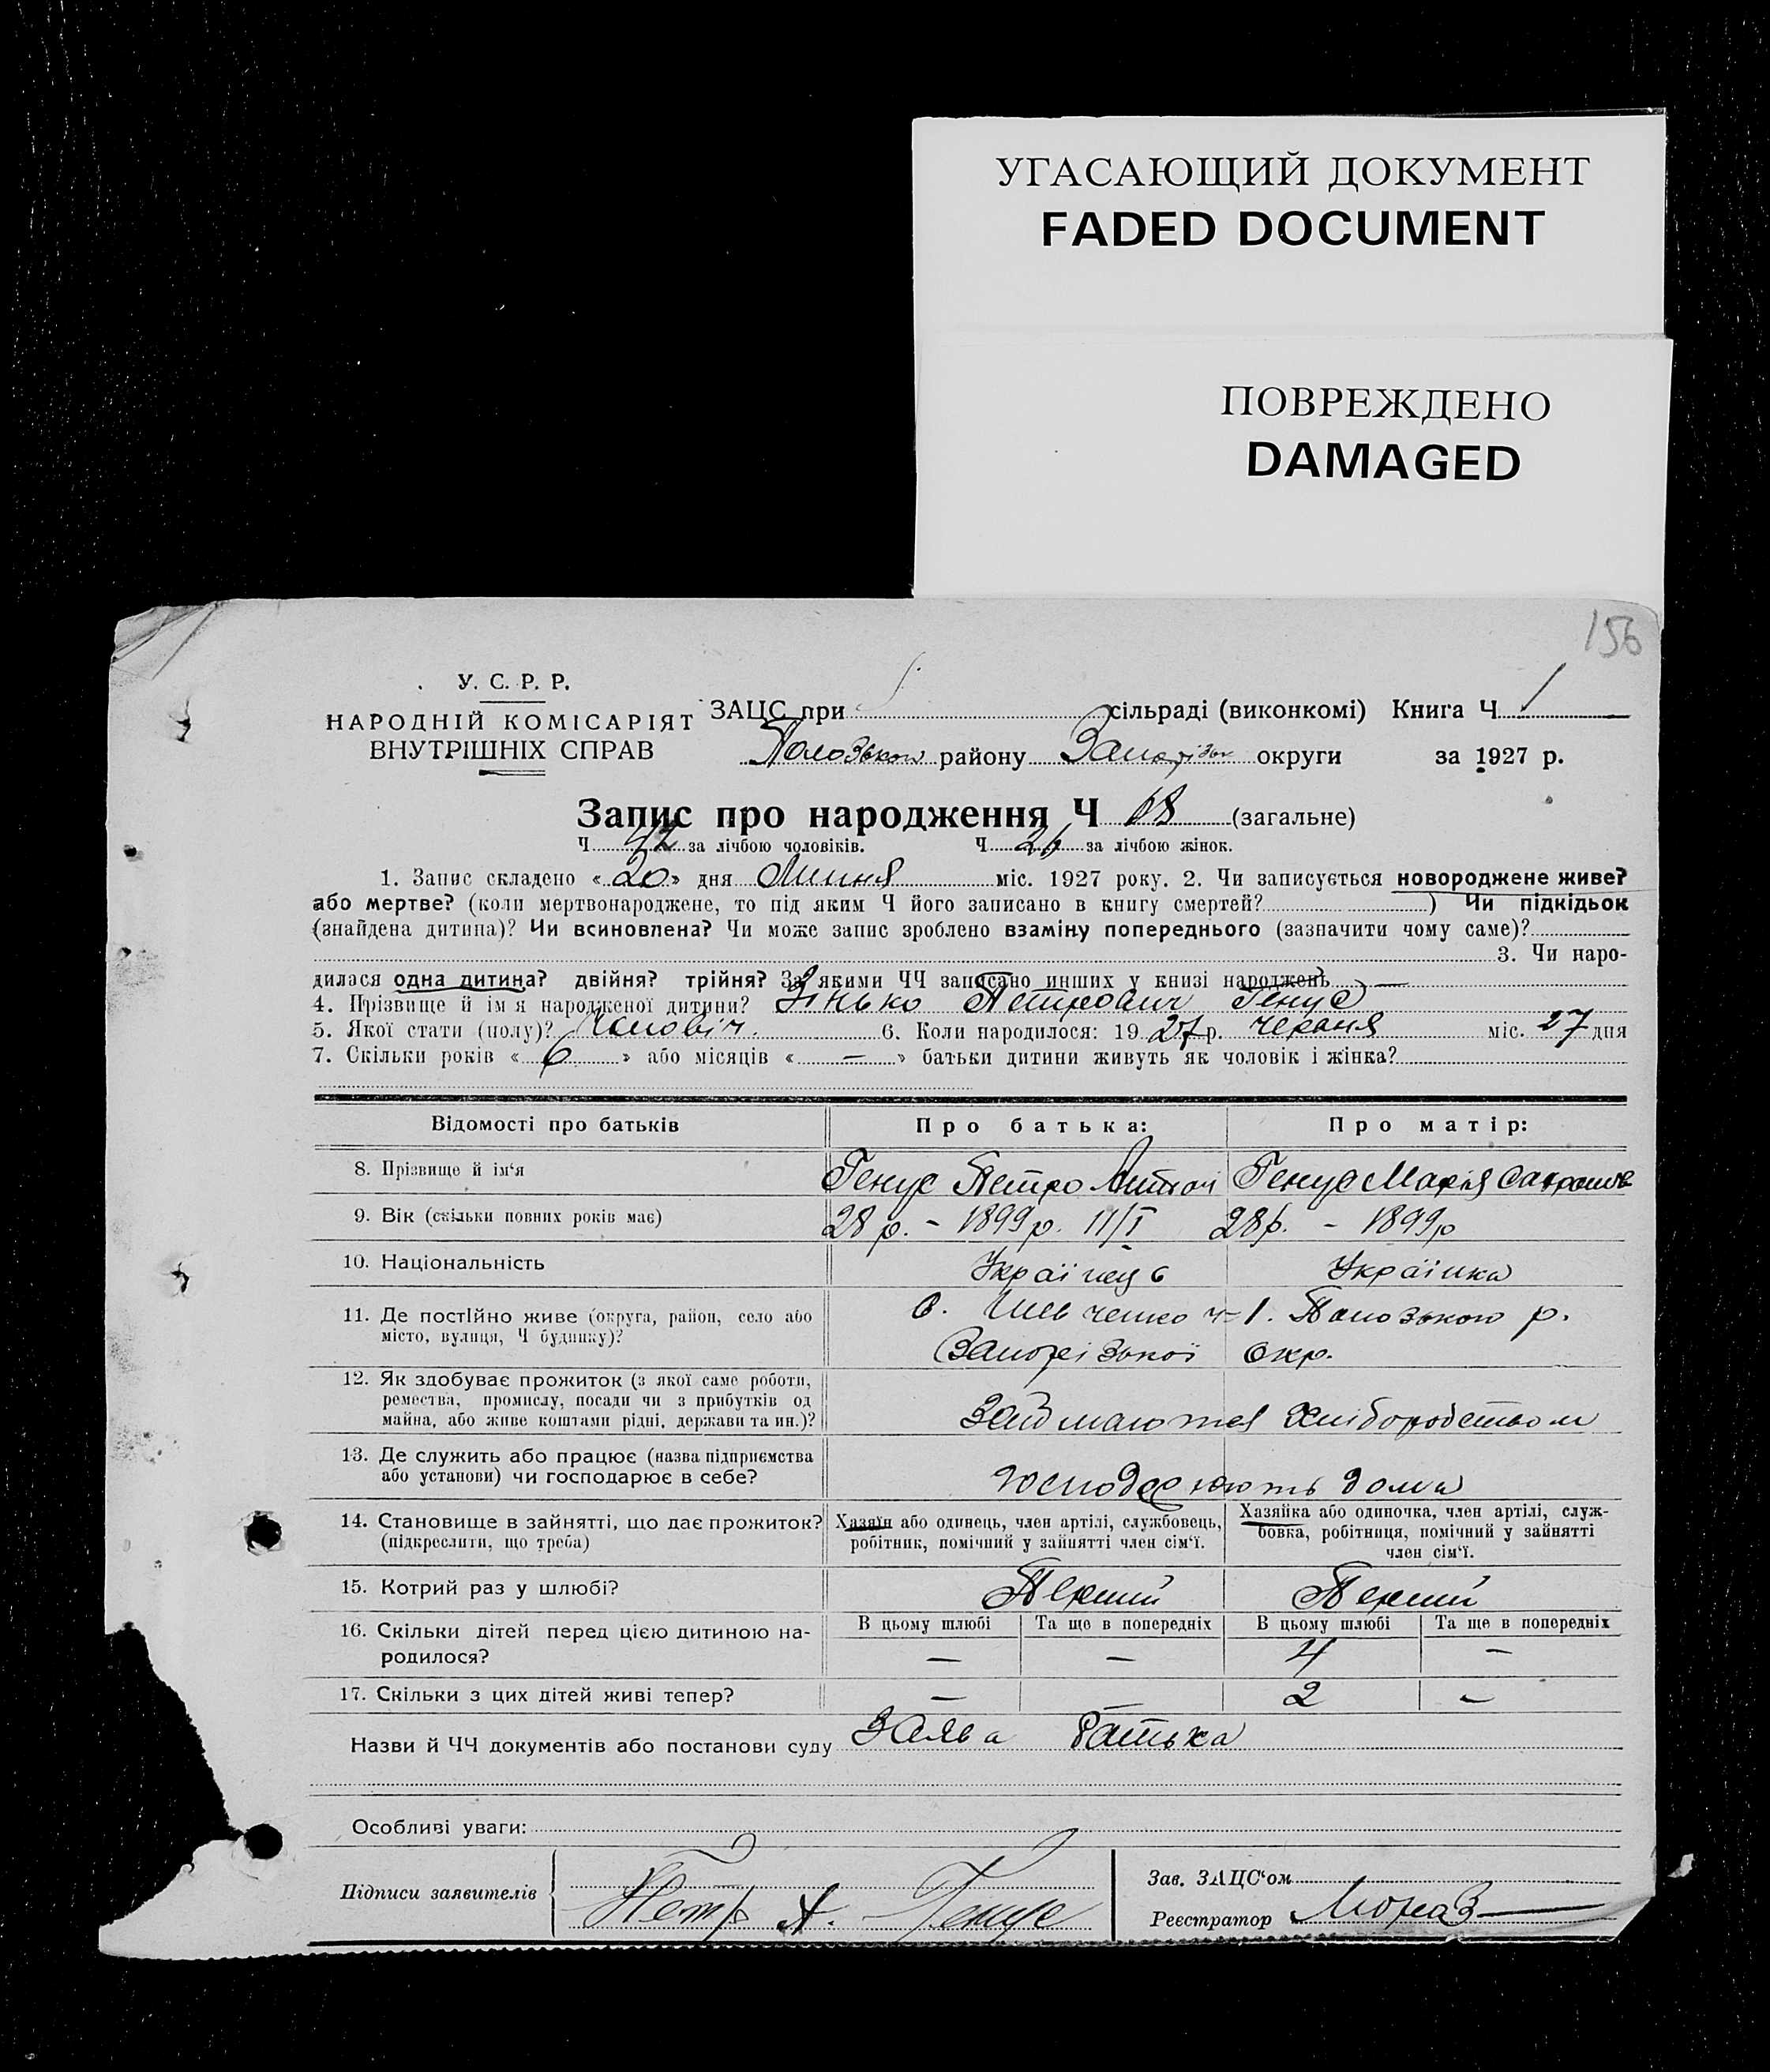 УГАСАЮЩИЙ ДОКУМЕНТ
FADED DOCUMENT
ПОВРЕЖДЕНО
DAMAGED
156
У. С. Р. Р.
НАРОДНІЙ КОМІСАРІЯТ
ВНУТРІШНІХ СПРАВ
ЗАЦС при сільраді (виконкомі) Книга Ч 1
району округи за 1927 р.
Запис про народження Ч 68 (загальне)
Ч 42 за лічбою чоловіків. Ч 26 за лічбою жінок.
1. Запис складено « 20 » дня Липня міс. 1927 року. 2. Чи записується новороджене живе?
або мертве? (коли мертвонароджене, то під яким Ч його записано в книгу смертей? ) Чи підкідьок
(знайдена дитина)? Чи всиновлена? Чи може запис зроблено взаміну попереднього (зазначити чому саме)?
3. Чи наро-
дилася одна дитина? двійня? трійня? За якими ЧЧ записано инших у книзі народжень —
4. Прізвище й ім'я народженої дитини? Зінько Петрович Генус
5. Якої стати (полу)? Чоловіч. 6. Коли народилося: 19 27 р. червня міс. 27 дня
7. Скільки років « 6 » або місяців « — » батьки дитини живуть як чоловік і жінка?
Відомості про батьків Про батька: Про матір:
8. Прізвище й ім'я Генус Петро Генус Марія
9. Вік (скільки повних років має) 28 р. - 1899 р. 28 р. - 1899 р
10. Національність Українец Українка
11. Де постійно живе (округа, район, село або
місто, вулиця, Ч будинку)?
с. Шевченко ч-1. р.
Запорізької окр.
12. Як здобуває прожиток (з якої саме роботи,
ремества, промислу, посади чи з прибутків од
майна, або живе коштами рідні, держави та ин.)?
Займаются Хліборобством
13. Де служить або працює (назва підприємства
або установи) чи господарює в себе?
господарюють дома
14. Становище в зайнятті, що дає прожиток?
(підкреслити, що треба)
Хазяїн або одинець, член артілі, службовець,
робітник, помічний у зайнятті член сім'ї.
Хазяйка або одиночка, член артілі, служ-
бовка, робітниця, помічний у зайнятті
член сім'ї.
15. Котрий раз у шлюбі? Перший Перший
16. Скільки дітей перед цією дитиною на-
родилося?
В цьому шлюбі Та ще в попередніх В цьому шлюбі Та ще в попередніх
— — 4 —
17. Скільки з цих дітей живі тепер? — — 2 —
Назви й ЧЧ документів або постанови суду Заява батька
Особливі уваги:
Підписи заявителів Петр А. Генус
Зав. ЗАЦС'ом
Реєстратор